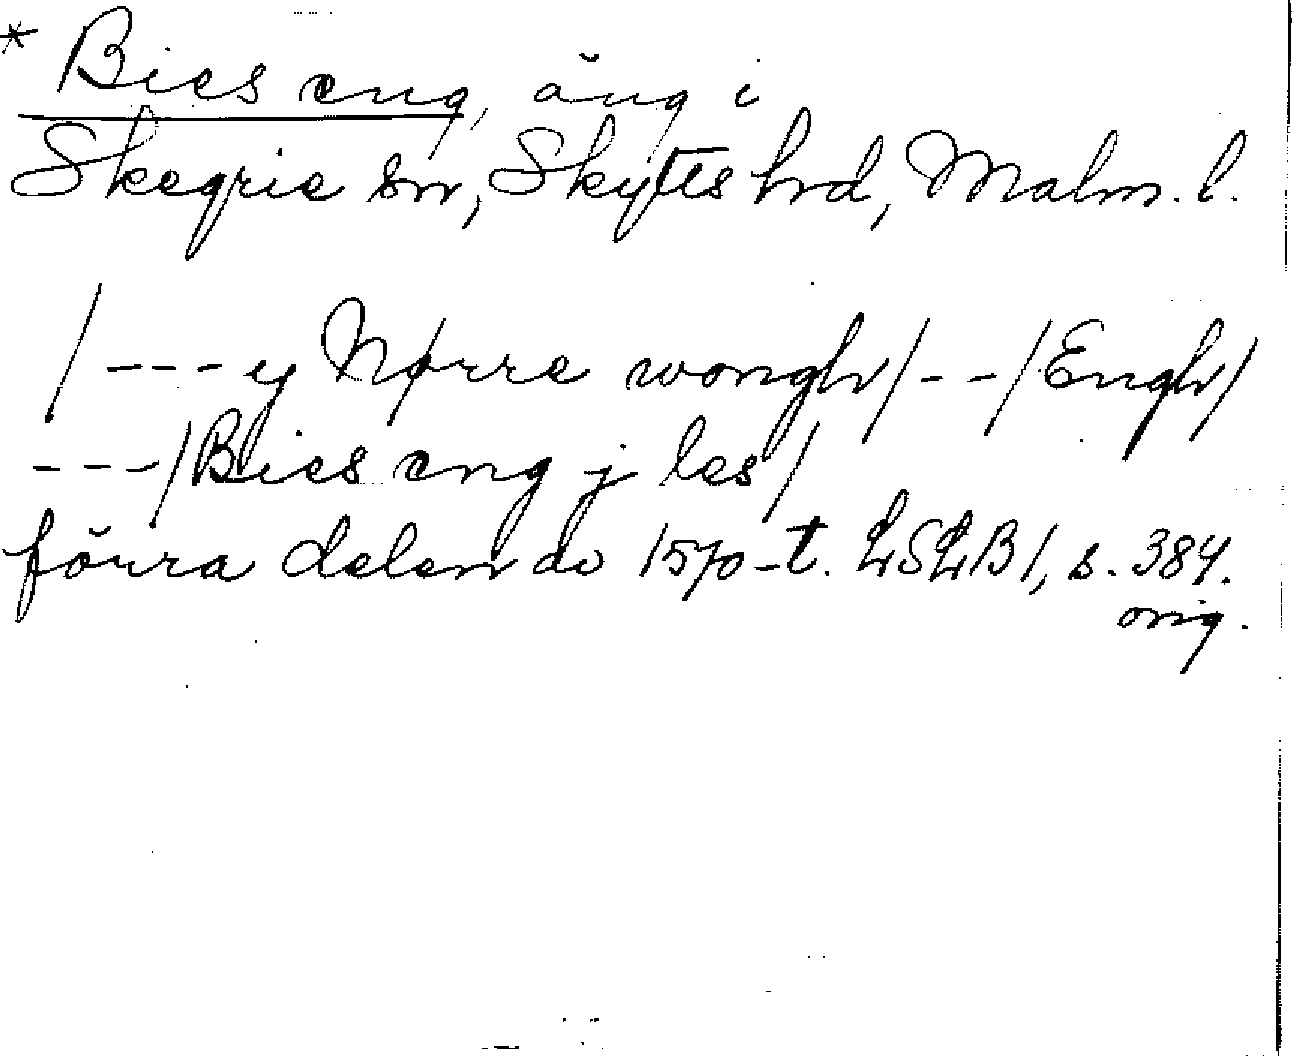 * Bies eng, äng i
Skegrie sn, Skytts hrd, Malm. l.
/ --- y Nørre wongh / -- / Engh /
--- / Bies eng j les /
förra delen av 1570-t. LSLB 1, s. 384.
orig.